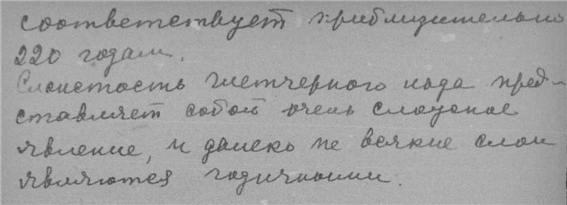 соответствует приблизительно
220 годам.
Слоистость глетчерного льда пред-
ставляет собой очень сложное
явление, и далеко не всякие слои
являются годичными.